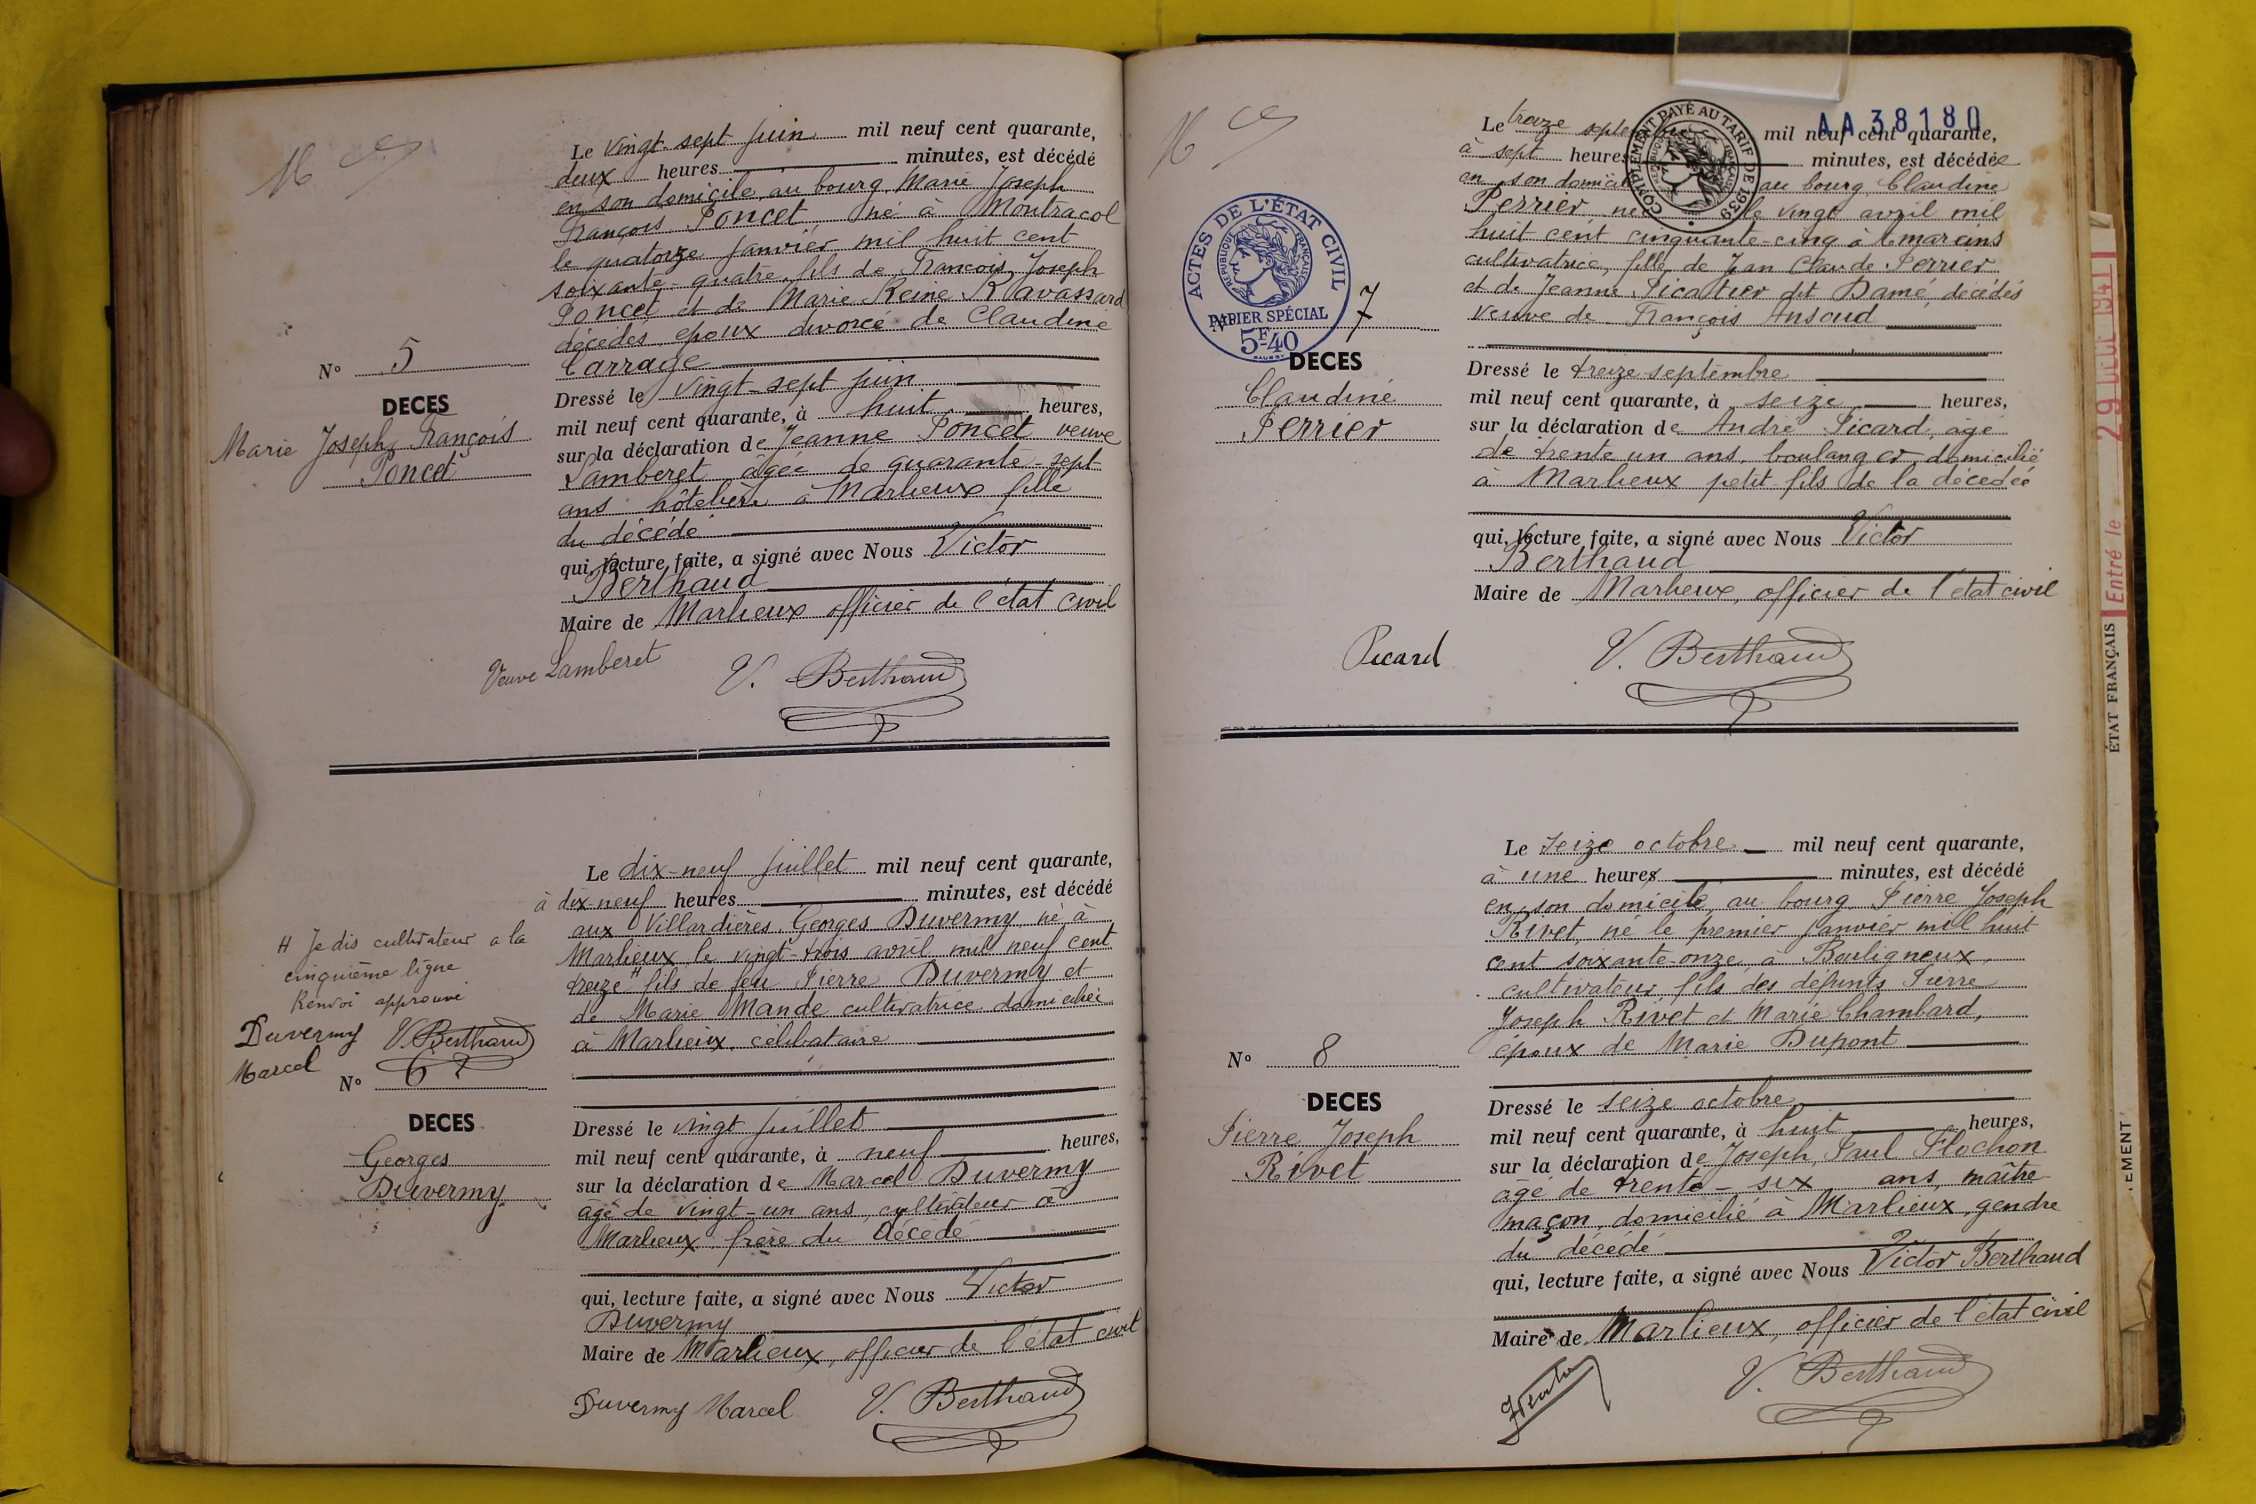 Le vingt-sept juin mil neuf cent quarante,
deux heures minutes, est décédé
en son domicile, au bourg, Marie Joseph
François Poncet né à Montracol
le quatorze janvier mil huit cent
soixante-quatre, fils de François Joseph
Poncet et de Marie Reine Ravassard
décédés, époux divorcé de Claudine
Carrage
N° 5
DECES
Marie Joseph François
Poncet
Dressé le vingt-sept juin
mil neuf cent quarante, à huit heures,
sur la déclaration de Jeanne Poncet veuve
Lamberet âgée de quarante-sept
ans hôtelière à Marlieux fille
du décédé
qui, lecture faite, a signé avec Nous Victor
Berthaud
Maire de Marlieux officier de l'état civil
Veuve Lamberet V. Berthaud
Le dix-neuf juillet mil neuf cent quarante,
à dix-neuf heures minutes, est décédé
aux Villardières Georges Duvermy, né à
Marlieux le vingt-trois avril mil neuf cent
treize # fils de feu Pierre Duvermy et
de Marie Mande cultivatrice domiciliée
à Marlieux, célibataire
# Je dis cultivateur a la
cinquième ligne
Renvoi approuvé
Duvermy V. Berthaud
Marcel
N° 6
DECES
Georges
Duvermy
Dressé le vingt juillet
mil neuf cent quarante, à neuf heures,
sur la déclaration de Marcel Duvermy
âgé de vingt-un ans, cultivateur à
Marlieux, frère du décédé
qui, lecture faite, a signé avec Nous Victor
Duvermy
Maire de Marlieux, officier de l'état civil
Duvermy Marcel V. Berthaud
AA38180
COMPLÉMENT PAYÉ AU TARIF DE 1939
Le treize septembre mil neuf cent quarante,
à sept heures minutes, est décédée
en son domicile au bourg Claudine
Perrier née le vingt avril mil
huit cent cinquante-cinq à
cultivatrice, fille de Jean Claude Perrier
et de Jeanne Picatier dit Damé, décédés
veuve de François Ansoud
ACTES DE L'ÉTAT CIVIL
RÉPUBLIQUE FRANÇAISE
PAPIER SPÉCIAL
5F40
N° 7
DECES
Claudine
Perrier
Dressé le treize septembre
mil neuf cent quarante, à seize heures,
sur la déclaration de André Picard, âgé
de trente un ans, boulanger, domicilié
à Marlieux petit fils de la décédée
qui, lecture faite, a signé avec Nous Victor
Berthaud
Maire de Marlieux, officier de l'état civil
Picard V. Berthaud
Le seize octobre mil neuf cent quarante,
à une heures minutes, est décédé
en son domicile, au bourg Pierre Joseph
Rivet, né le premier janvier mil huit
cent soixante-onze à Bouligneux,
cultivateur, fils des défunts Pierre
Joseph Rivet et Marie Chambard,
époux de Marie Dupont
N° 8
DECES
Pierre Joseph
Rivet
Dressé le seize octobre
mil neuf cent quarante, à huit heures,
sur la déclaration de Joseph, Paul Flochon
âgé de trente-six ans, maître
maçon, domicilié à Marlieux, gendre
du décédé
qui, lecture faite, a signé avec Nous Victor Berthaud
Maire de Marlieux, officier de l'état civil
V. Berthaud
ÉTAT FRANÇAIS
Entré le 1941